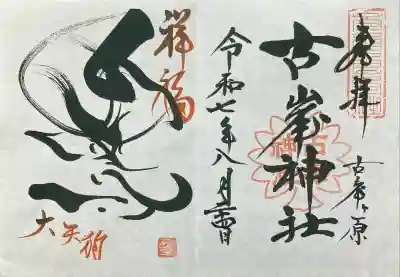 奉拝
古峯ヶ原
古峯神社
令和七年八月
祥福
大天狗